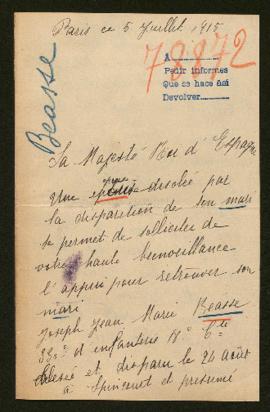 Paris ce 5 Juillet 1915
78872
A
Pedir informes
Que se hace así
Devolver
Beasse
Sa Majesté Roi d'Espagne
Une épouse désolée par
la disparition de son mari
se permet de solliciter de
votre haute bienveillance
l'appui pour retrouver son
mari
Joseph Jean Marie Beasse
d'infanterie Cie
blessé et disparu le 24 août
à Spincourt et présumé